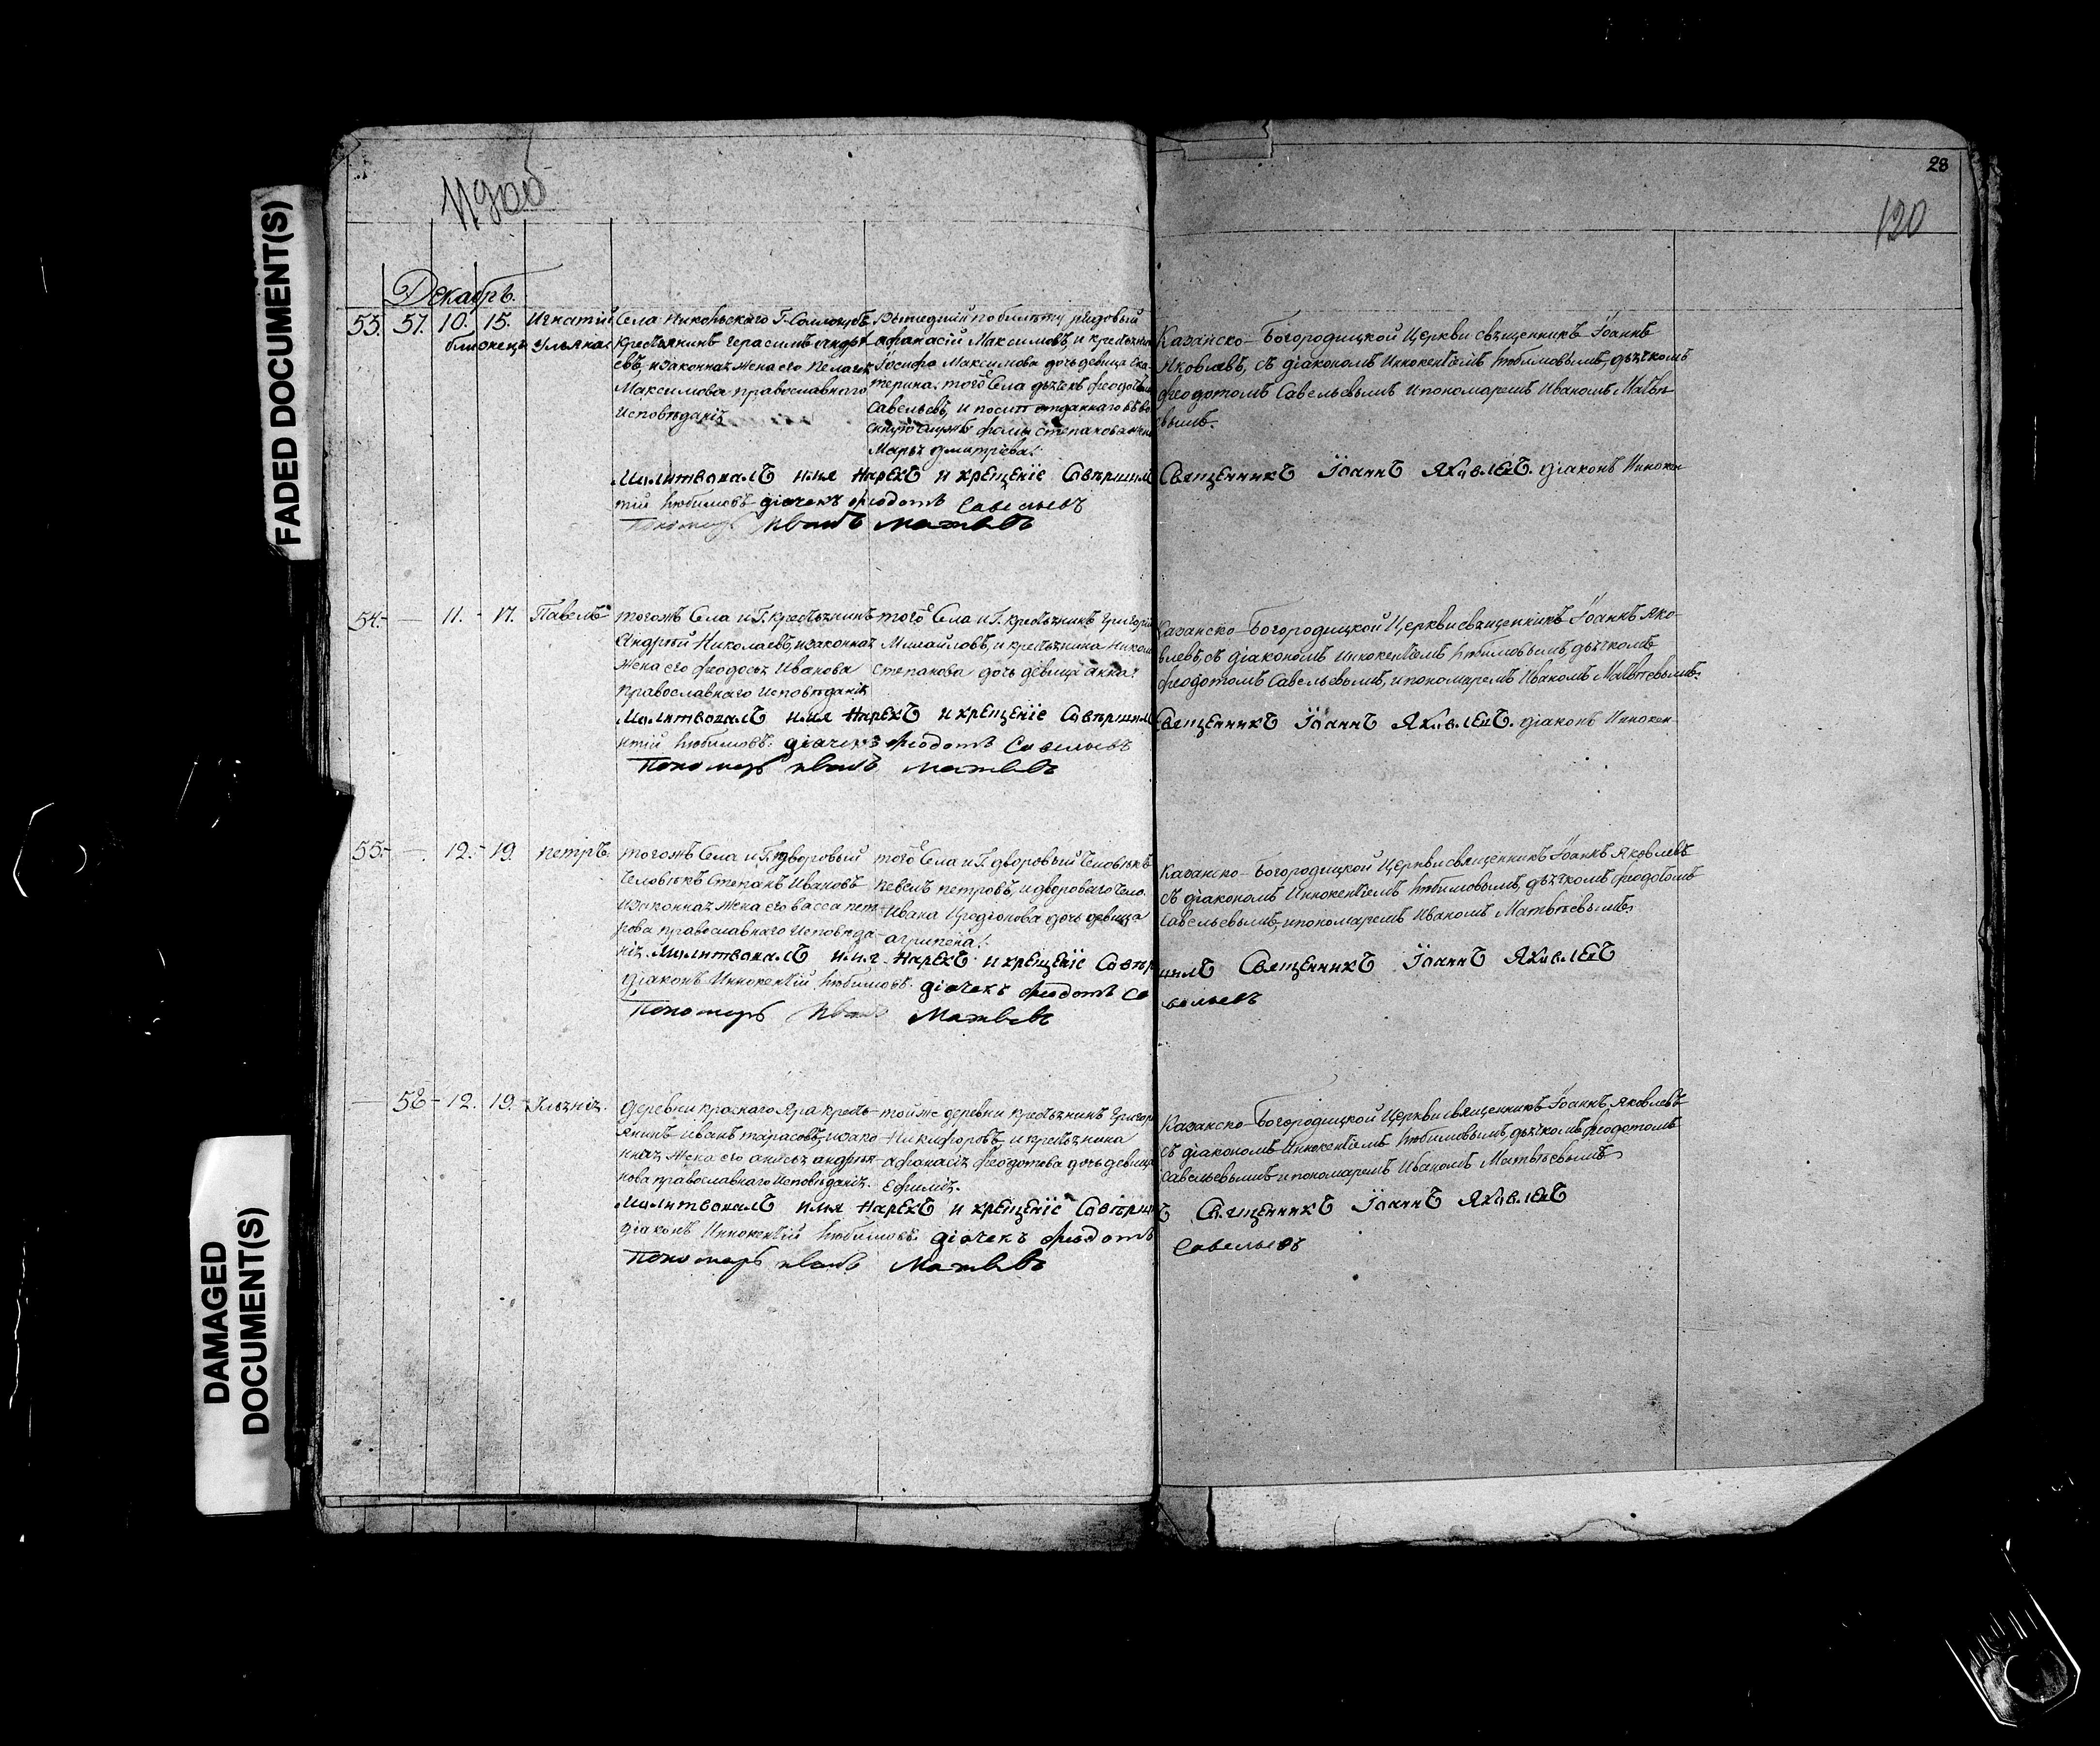 FADED DOCUMENT(S)
DAMAGED
DOCUMENT(S)
28
120
Декабрь.
53. 57. 10. 15. Игнатий
близнецы Ульяна
Села Никольскаго Г.
Крестьянинъ Герасимъ Андре-
евъ, и законная жена его Пелагея
Максимова православнаго
исповѣданія
Вышедший по билету рядовый
Афанасій Максимовъ, и крестьянина
Іосифа Максимова дочь девица Ека-
терина. того Села дьячекъ Феодотъ
Савельевъ, и
скную службу Фомы Степанова жена
Марья Дмитріева.
Казанско-Богородицкой Церкви священникъ Іоаннъ
Яковлевъ, съ діакономъ Иннокентіемъ Любимовымъ, дьячкомъ
Феодотомъ Савельевымъ и пономаремъ Иваномъ Матвѣ-
вымъ.
Молитвовалъ имя Нарекъ и крещеніе Совершилъ Священникъ Іоаннъ Яковлевъ. діаконъ Иннокен-
тій Любимовъ дiячекъ Феодотъ Савельевъ
Пономарь Иванъ Матвѣевъ
54. — 11. 17. Павелъ
тогожъ Села и Г. крестьянинъ
Андрей Николаевъ, и законная
жена его Феодосья Иванова
православнаго исповѣданія
того Села и Г. крестьянинъ Григорій
Михайловъ, и крестьянина
Степанова дочь девица Анна.
Казанско-Богородицкой Церкви священникъ Іоаннъ Яко-
влевъ, съ діакономъ Иннокентіемъ Любимовымъ, дьячкомъ
Феодотомъ Савельевымъ, и пономаремъ Иваномъ Матвѣевымъ.
Молитвовалъ имя Нарекъ и крещеніе Совершилъ Священникъ Іоаннъ Яковлевъ. діаконъ Иннокен-
нтій Любимовъ. дiячекъ Феодотъ Савельевъ
Пономарь Иванъ Матвѣевъ
55. — 12. 19. Петръ.
тогожъ Села и Г. дворовый
человѣкъ Степанъ Ивановъ
и законная жена его Васса Пет-
рова православнаго исповѣда-
нія.
того Села и Г. дворовый человѣкъ
Павелъ Петровъ, и двороваго чело.
Ивана Иродіонова дочь девица
Агрипена.
Казанско-Богородицкой Церкви священникъ Іоаннъ Яковлевъ
съ діакономъ Иннокентіемъ Любимовымъ, дьячкомъ Феодотомъ
Савельевымъ, и пономаремъ Иваномъ Матвѣевымъ.
Молитвовалъ имя Нарекъ и крещеніе Совер шилъ Священникъ Іоаннъ Яковлевъ
діаконъ Иннокентій Любимовъ. дiячекъ Феодотъ Са вельевъ
Пономарь Иванъ Матвѣевъ
— 58 12. 19. Ульянія.
Деревни Краснаго Яра кресть-
янинъ Иванъ Тарасовъ, и зако-
нная жена его Анисья
нова православнаго исповѣданія.
тойже деревни крестьянинъ Григорій
Никифоровъ, и крестьянина
Афанасія Феодотова дочь девица
Ефимія.
Казанско-Богородицкой Церкви священникъ Іоаннъ Яковлевъ
съ діакономъ Иннокентіемъ Любимовымъ, дьячкомъ Феодотомъ
Савельевымъ и пономаремъ Иваномъ Матвѣевымъ
Молитвовалъ имя Нарекъ и крещеніе Совершилъ Священникъ Іоаннъ Яковлевъ
діаконъ Иннокентій Любимовъ. дiячекъ Феодотъ Савельевъ
Пономарь Иванъ Матвѣевъ